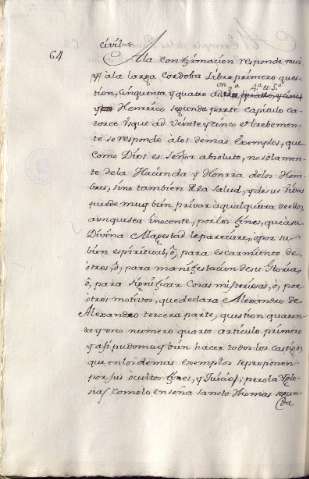 64
civil =
A la confirmacion responde mui
a la larga Cordoba Libro primero ques
tion, cinquenta y quatro
y Henrico segunda parte capitulo ca
torce
se respondo a los demas exemplos, que
como Dios es Señor absoluto, no solamen
te de la Hacienda y Honra de los Hom
bres, sino tambien de la Salud, y de sus Vidas
puede muy bien privar a qualquiera de ello,
aunque sea inocente, por los fines, que a su
Divina Magestad le pareciere, o por su
bien espiritual, ô, para escarmiento de
otros, ô, para manifestacion de su Gloria,
ô, para significar Cosas misteriosas, ô, por
otros motivos, que declara Alexandro de
Alexandro tercera parte, question quaren
ta y uno numero quarto articulo primero
y assi pudo muy bien hacer todos los castigos
que en los demas exemplos se proponen
por sus ocultos fines, y Juicios; pero la Ygle
sia, como lo enseña santo Thomas segun